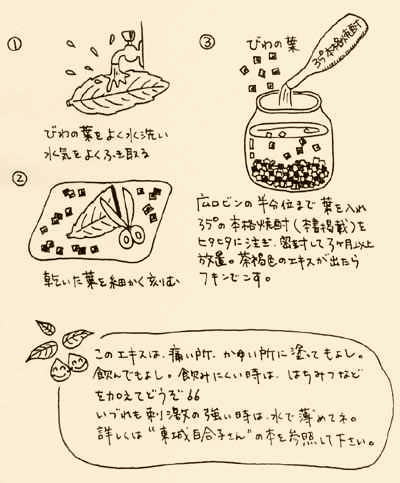 ①
びわの葉をよく水洗い
水気をよくふき取る
②
乾いた葉を細かく刻む
③
びわの葉
35°本格焼酎
広口ビンの半分位まで葉を入れ
35°の本格焼酎(本書掲載)を
ヒタヒタに注ぎ、密封して3ヶ月以上
放置。茶褐色のエキスが出たら
フキンでこす。
このエキスは、痛い所、かゆい所に塗ってもよし。
飲んでもよし。飲みにくい時は、はちみつなど
を加えてどうぞ
いづれも刺激の強い時は、水で薄めてネ。
詳しくは“東城百合子さん”の本を参照して下さい。